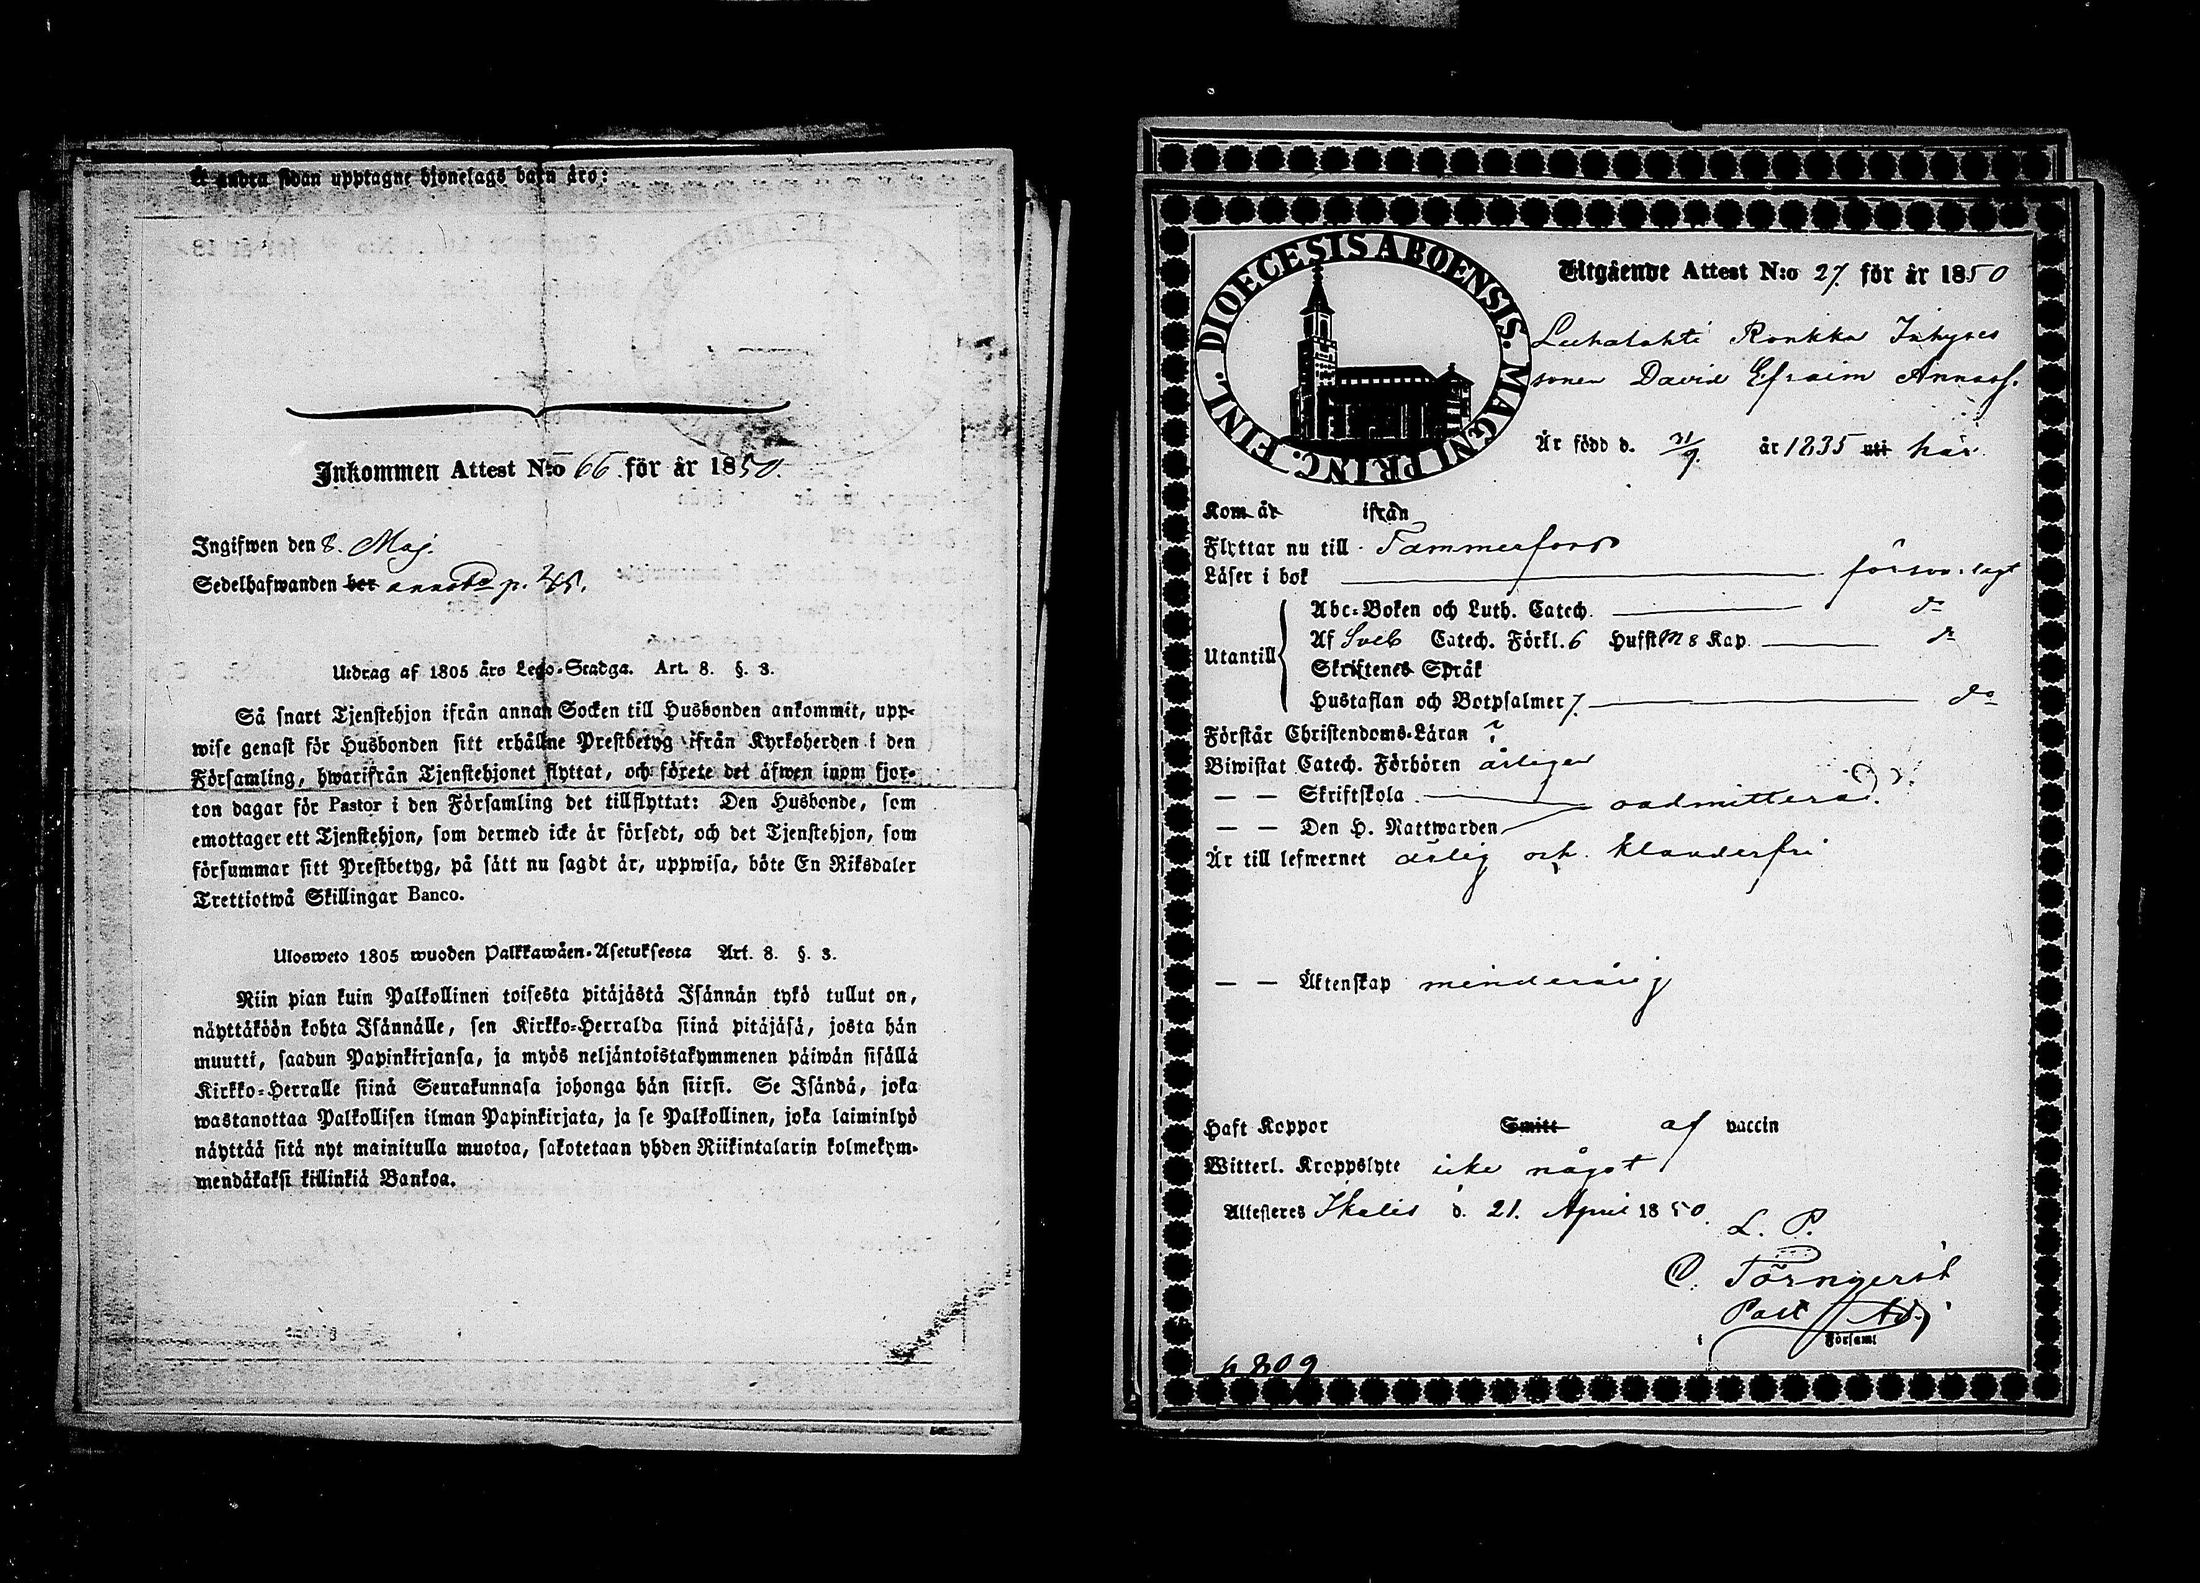 A andra sidan upptagne hjonelags barn äro:
Inkommen Attest N:o 66 för år 1850.
Ingifwen den 8. Maj.
Sedelhafwanden bor p.
Utdrag af 1805 års Lego-Stadga. Art. 8. §. 3.
Så snart Tjenstehjon ifrån annan Socken till Husbonden ankommit, upp-
wise genast för Husbonden sitt erhållne Prestbetyg ifrån Kyrkoherden i den
Församling, hwarifrån Tjenstehjonet flyttat, och förete det äfwen inom fjor-
ton dagar för Pastor i den Församling det tillflyttat: Den Husbonde, som
emottager ett Tjenstehjon, som dermed icke är försedt, och det Tjenstehjon, som
försummar sitt Prestbetyg, på sätt nu sagdt är, uppwisa, böte En Riksdaler
Trettiotwå Skillingar Banco.
Ulosweto 1805 wuoden Palkkawäen-Asetuksesta Art. 8. §. 3.
Niin pian kuin Palkollinen toisesta pitäjästä Isännän tykö tullut on,
näyttäköön kohta Isännälle, sen Kirkko-Herralda siinä pitäjäsä, josta hän
muutti, saadun Papinkirjansa, ja myös neljäntoistakymmenen päiwän sisällä
Kirkko-Herralle siinä Seurakunnasa johonga hän siirsi. Se Isändä, joka
wastanottaa Palkollisen ilman Papinkirjata, ja se Palkollinen, joka laiminlyö
näyttää sitä nyt mainitulla muotoa, sakotetaan yhden Riikintalarin kolmekym-
mendäkaksi killinkiä Bankoa.
DIOECESIS ABOENSIS. MAGNI PRINC. FINL.
Utgående Attest N:o 27. för år 1850
Luhalahti Ronkka Inhyses
sonen David Efraim Annasf.
Är född d. /9. år 1835 uti här.
Kom år ifrån
Flyttar nu till Tammerfors
Läser i bok försvarligt
Utantill
Abc-Boken och Luth. Catech. do
Af Sveb Catech. Förkl. 6 Hufst M 8 Kap. do
Skriftenes Språk
Hustaflan och Botpsalmer 7. do
Förstår Christendoms-Läran
Biwistat Catech. Förhören årligen
— — Skriftskola oadmitterad.
— — Den H. Nattwarden
Är till lefwernet ärlig och klanderfri
— — Äktenskap minderårig
Haft Koppor Smitt af vaccin
Witterl. Kroppslyte icke något
Attesteres Ikalis d. 21. April 1850.
L. P.
C. Törnqvist
Past Adj
i Församl